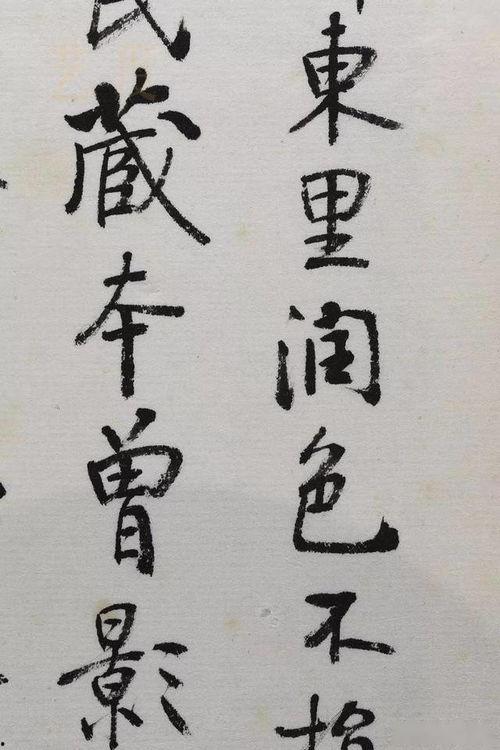 東里潤色不
氏藏本曾影